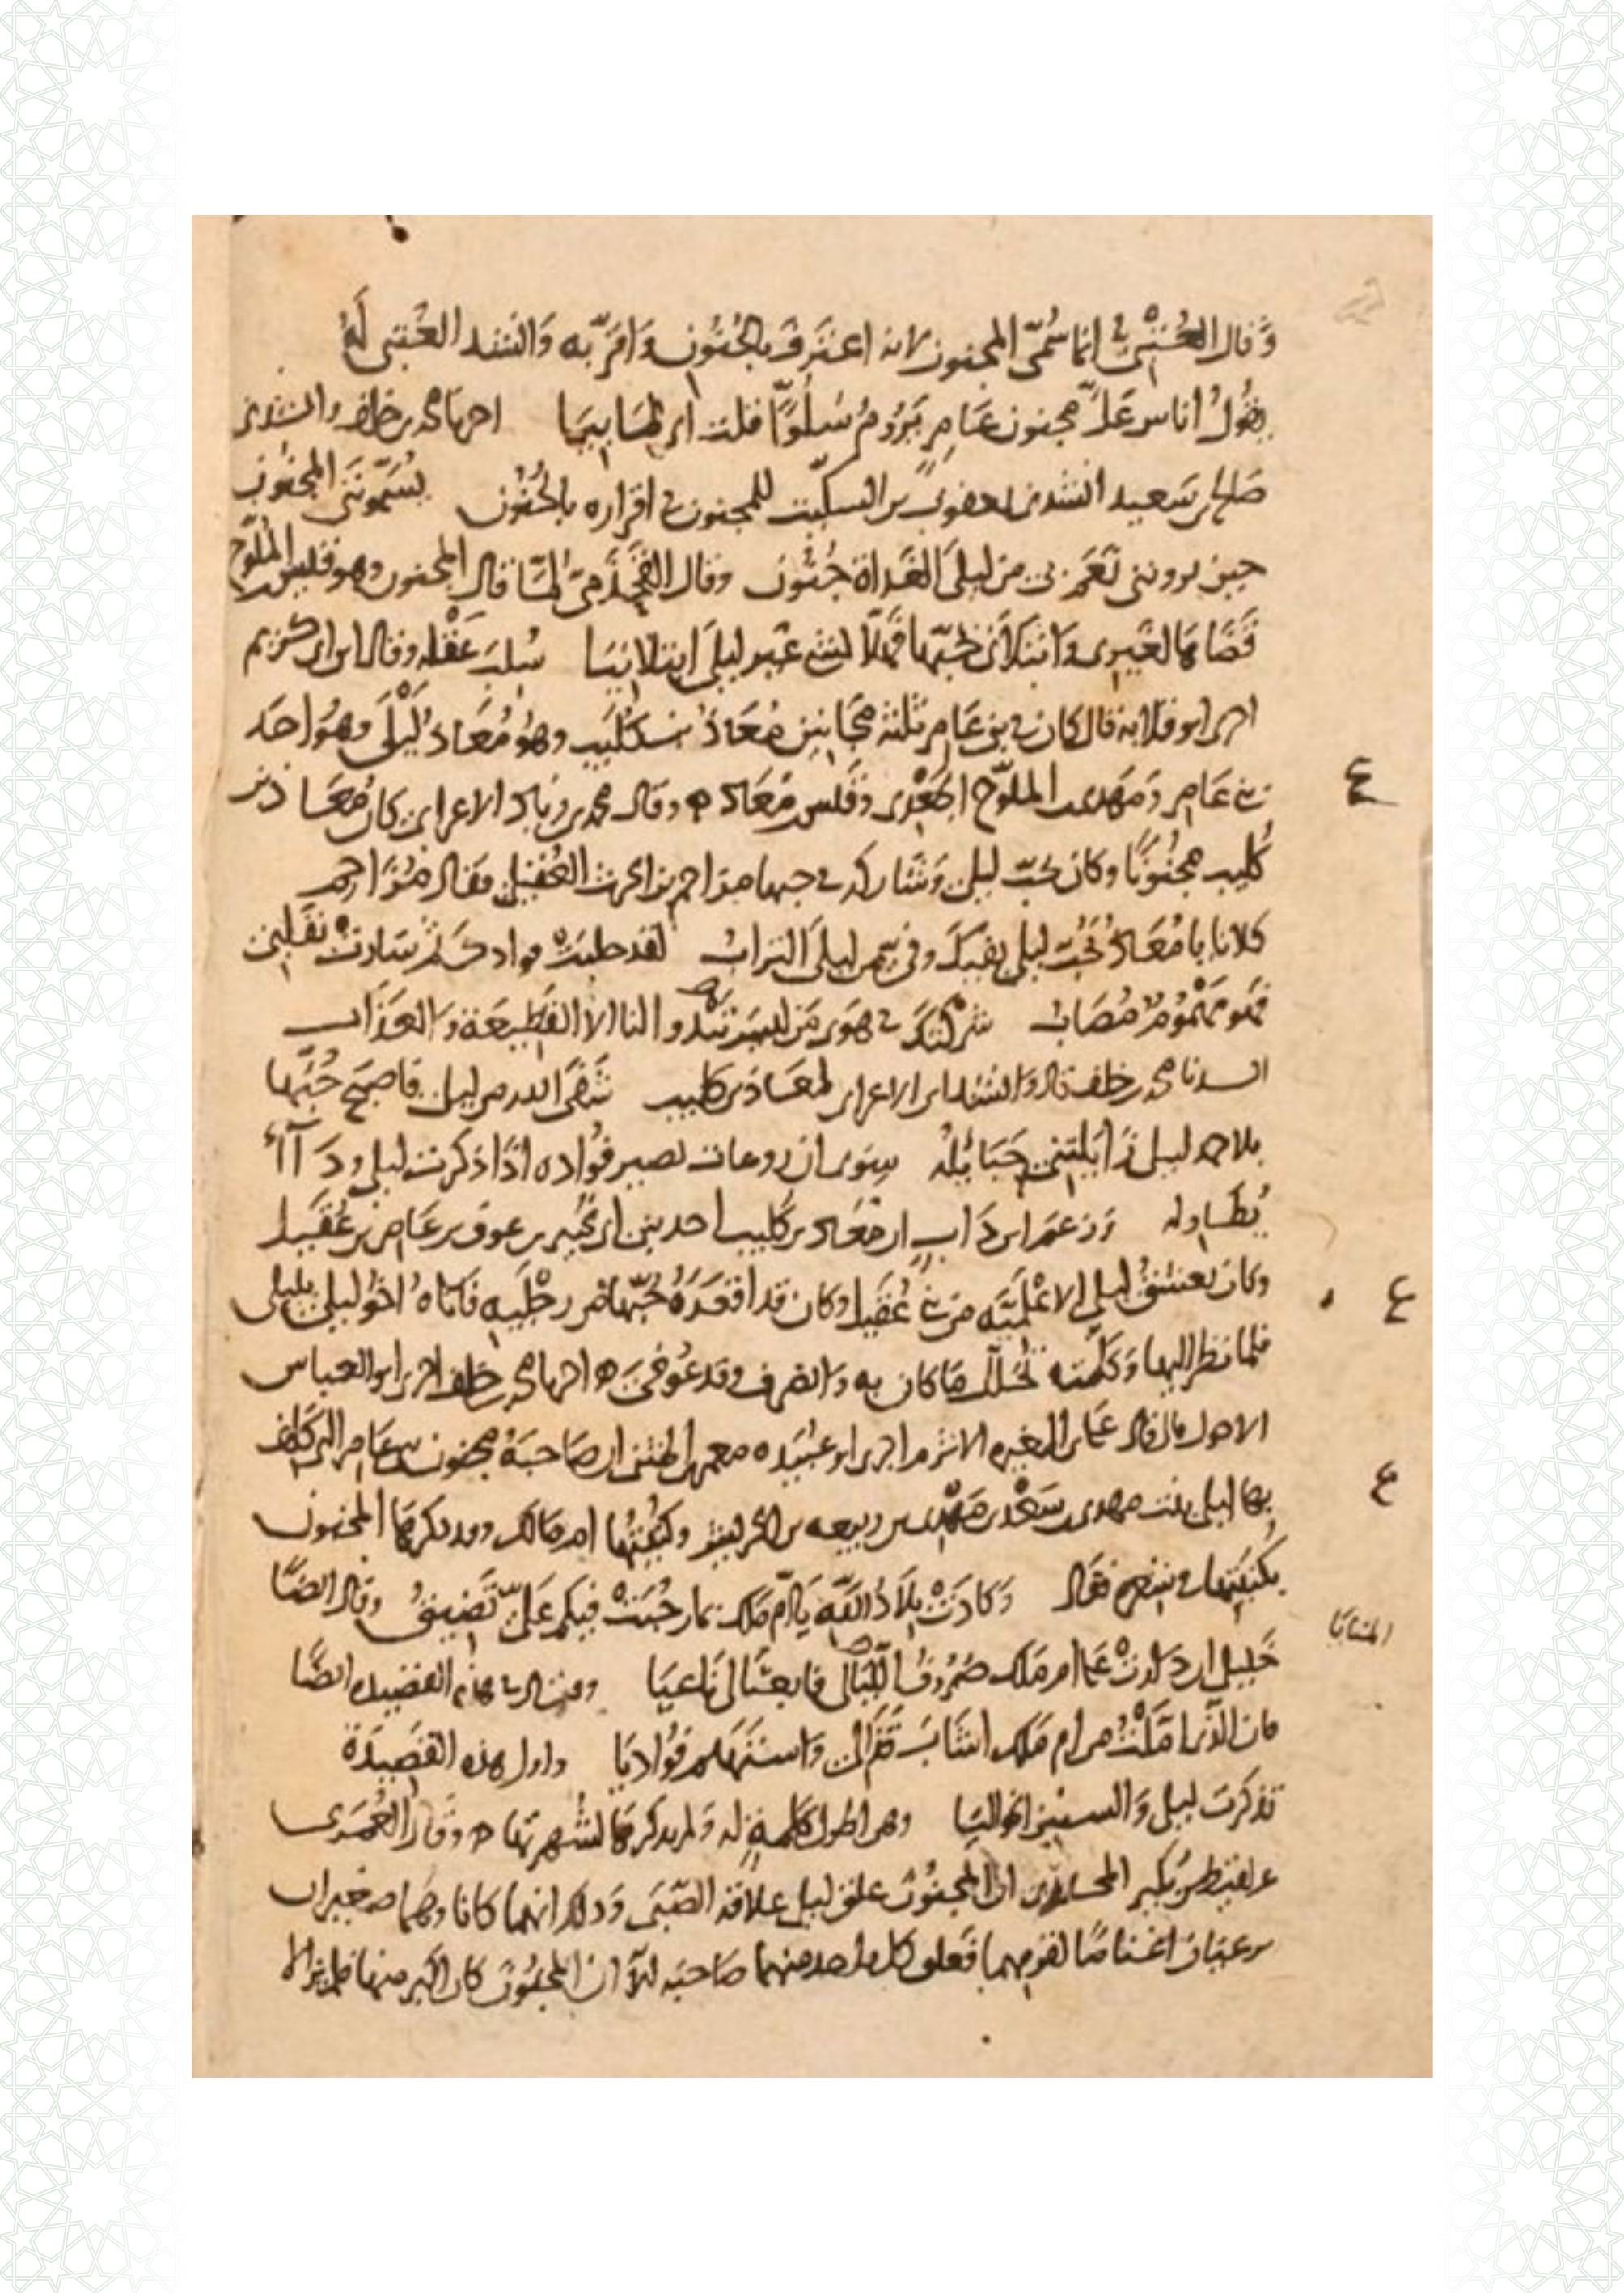 وَقال العُتْبيّ انما سُمّيَ المجنون لانه اعترَف بالجُنُون وَاقرّ به وَانشد العُتبي لَهُ
يقُولُ اناس عَلّ مجنون عَامِرٍ يَرُومُ سُلُوًّا قلت اني لِمَا بِيَا اخبرنا محمد بن خلف وانشدني
صَالح بن سَعيد انشدني يعقوب بن السكّيت للمجنون في اقراره بالجُنُون يُسَمّونَني المجنُون
حين يرونني نَعَم بي من ليلَى الغَدَاة جُنُون وقال القَحْذَميّ لمّا قال المجنون وهو قيس بن المُلَوّح
قَضَاهَا لغَيري وَابْتَلَاني بحُبّها فَهَلّا بشيء غير ليلى ابتلانيَا سُلِبَ عَقْله وقال ابن الكريم
اخبرني ابو قلابة قال كان في بني عَامر ثلثة مجَانين مُعَاذُ بن كُلَيب وهُو مُعَاذ لَيْلَى وهُوَ احَد
بني عَامِر وَمَهدي بن الملوّح الجَعْدي وَقَيس بن مُعَاذ وقال محمد بن زياد الاعرابي كان مُعَاذ بن
كُليب مجنُونًا وكان يحبّ ليلى وَشَاركه في حبها مزاحم بن الحرث العُقيلي فقال مُزَاحم
كلانا يا مُعَاذُ نُحبّ ليلى بفيّ وَفيكَ من ليلَى التراب لقد خبلت فوادك ثم ثنت بقلبي
فهو مَهْمُوم مُصَاب شركتك في هوى مَن ليس تبْدو لنا الا القَطيعَة وَالعَذَاب
انشدنا محمد بن خلف قال وَانشدنا ابن الاعرابي لمعَاذ بن كليب شَفَى الله من ليلى فاصبَح حُبّها
بلا حمد ليلى زَايَلَتني حَبَائِلُه سِوَى ان روعات تصيب فُواده اذا ذكرت ليلى وَدَآءً
يُطَاوله وَزعَم ابن دَاب ان مُعَاذ بن كُليب احد بني نُمَير بن عوف بن عَامر بن عُقَيل
وكان يعشق ليلى الاعْلَميّه من بني عُقَيل وكان قد اقعَدَهُ حُبّها من رجْلَيه فَاتَاهُ اخُو ليلى بليلى
فلما نظر اليها وَكلّمته تحَلّل مَا كان به وَانصرف وقد عُوفيَ اخبرنا محمد بن خلف اخبرني ابو العباس
الاحول قال قال علي بن المغيره الاثرم اخبرني ابو عُبَيْده معمر بن المثنى ان صَاحبَةُ مجنون بني عَامر التي كلف
بها ليلى بنت مهدي بن سَعْد بن مَهْدي بن ربيعه بن الحريش وكُنيَتُها ام مَالك وقد ذكرهَا المجنون
بكُنيَتِها في شعره فقال وَكادَتْ بِلَادُ اللّهِ يَا امّ مَالك بما رحُبَتْ فيكم عَلَيّ تَضيقُ وقال ايضًا
خَليليّ ان دَارَتْ عَلى ام مَلك صُرُوفُ اللّيَالي فابعثَا لي نَاعيَا وقال في هذه القصيده ايضًا
فان الّذي امَّلْتُ من ام مَلك اشَابَ قَذَالي وَاستهَام فُوَاديَا واول هذه القَصِيدَة
تذكرت ليلى وَالسنين الخَواليَا وهي اطول كلمة له وَلم نذكرهَا لشُهرتها وقال العُمَري
عن لقيط بن بُكَير المحاربي ان المجنُون علق ليلى علاقة الصِّبَى وَذلك انهما كانا وهُمَا صغيران
يرعيان اغنامًا لقومهما فعلق كل واحد منهما صَاحبَه الّا ان المجنُون كان اكبر منها فلم يزالا
ع
ع
ع
المنايَا